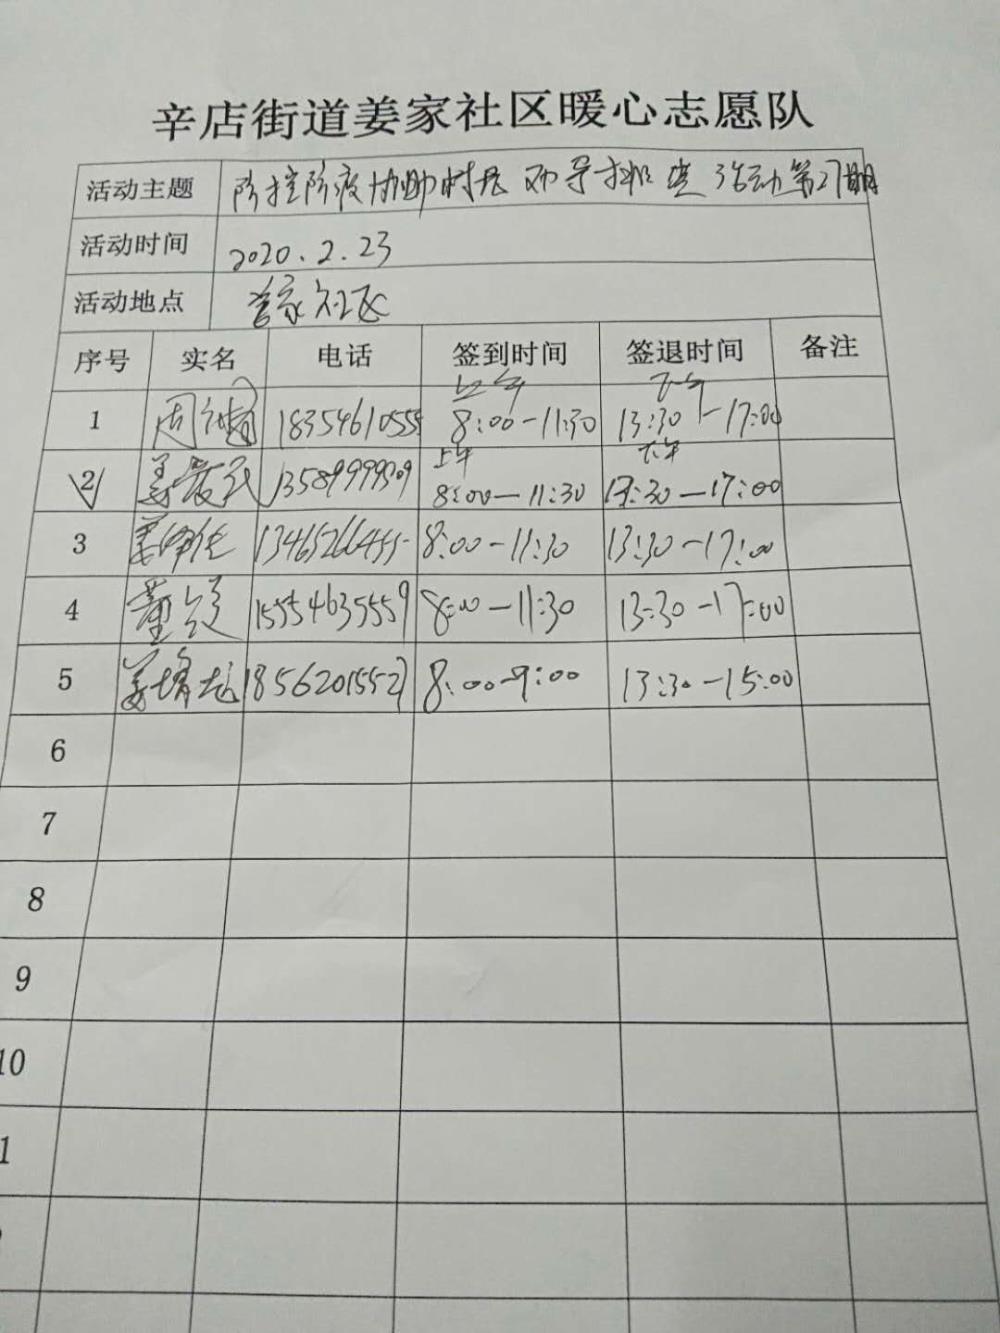 辛店街道姜家社区暖心志愿队
活动主题 防控防疫协助村居 劝导排查 活动第27期
活动时间 2020.2.23
活动地点 姜家社区
序号 实名 电话 签到时间 签退时间 备注
上午 下午
1 周 183546105 8:00-11:30 13:30-17:00
上午 下午
2 姜爱民 8:00-11:30 13:30-17:00
3 姜 8:00-11:30 13:30-17:00
4 董 15554635559 8:00-11:30 13:30-17:00
5 姜 18562015527 8:00-9:00 13:30-15:00
6
7
8
9
10
1